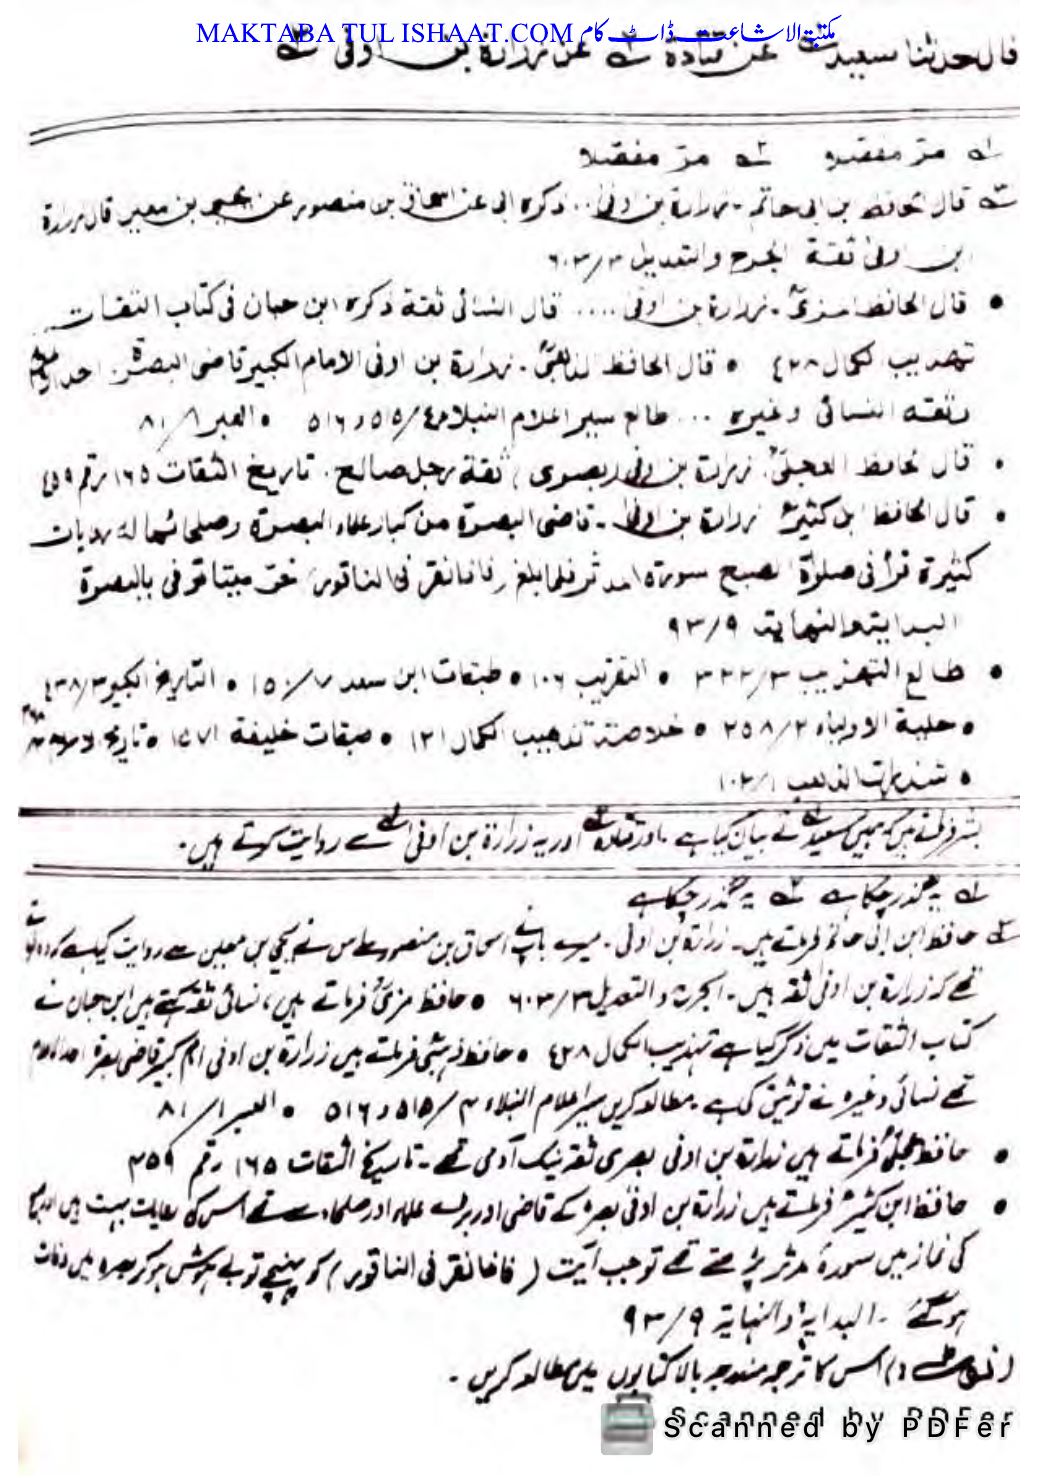 MAKTABA TUL ISHAAT.COM مکتبۃ الاشاعت ڈاٹ کام
قال حدثنا سعید عن قتادة عن زرارة بن اوفی
مر مفصلا مر مفصلا
قال الحافظ ابن ابی حاتم - زرارة بن اوفی .. ذکره ابی عن اسحاق بن منصور عن یحیی بن معین قال زرارة
ابن اوفی ثقة الجرح والتعدیل ٦٠٣/٣
• قال الحافظ المزی - زرارة بن اوفی .... قال النسائی ثقة ذکره ابن حبان فی کتاب الثقات
تهذیب الکمال ٤٢٨ • قال الحافظ الذهبی - زرارة بن اوفی الامام الکبیر قاضی البصرة احد
وثقه النسائی وغیره ... طالع سیر اعلام النبلاء ٥١٥/٤ و ٥١٦ • العبر ٨١/١
• قال الحافظ العجلی زرارة بن اوفی (بصری) ثقة رجل صالح - تاریخ الثقات ١٦٥ رقم
• قال الحافظ ابن کثیر زرارة بن اوفی - قاضی البصرة من کبار علماء البصرة وصلحائها له روایات
کثیرة قرأ فی صلوة الصبح سورة المدثر فلما بلغ (فاذا نقر فی الناقور) خر میتا توفی بالبصرة
البدایة والنهایة ٩٣/٩
• طالع التهذیب ٣٢٢/٣ • التقریب ١٠٦ • طبقات ابن سعد ١٥٠/٧ • التاریخ الکبیر ٤٣٨/٣
• حلیة الاولیاء ٢٥٨/٢ • خلاصة تذهیب الکمال ١٢١ • طبقات خلیفة ١٥٧١ • تاریخ الاسلام
• شذرات الذهب ١٠٢/١
بشر فرماتے ہیں کہ ہمیں سعید نے بیان کیا ہے اور قتادہ اور یہ زرارة بن اوفی سے روایت کرتے ہیں۔
یہ گذر چکا ہے یہ گذر چکا ہے
حافظ ابن ابی حاتم فرماتے ہیں۔ زرارة بن اوفی - میرے باپ نے اسحاق بن منصور سے اس نے یحیی بن معین سے روایت کیا ہے کہ وہ
تھے کہ زرارة بن اوفی ثقہ ہیں۔ الجرح والتعدیل ٦٠٣/٣ • حافظ مزی فرماتے ہیں، نسائی ثقہ کہتے ہیں ابن حبان نے
کتاب الثقات میں ذکر کیا ہے تہذیب الکمال ٤٢٨ • حافظ ذہبی فرماتے ہیں زرارة بن اوفی امام کبیر قاضی بصرہ
تھے نسائی وغیرہ نے توثیق کی ہے۔ مطالعہ کریں سیر اعلام النبلاء ٥١٥/٤ و ٥١٦ • العبر ٨١/١
• حافظ عجلی فرماتے ہیں زرارة بن اوفی بصری ثقہ نیک آدمی تھے۔ تاریخ الثقات ١٦٥ رقم
• حافظ ابن کثیر فرماتے ہیں زرارة بن اوفی بصرہ کے قاضی اور بڑے علماء اور صلحاء سے تھے اس کی روایات بہت ہیں اور صبح
کی نماز میں سورۂ مدثر پڑھتے تھے تو جب آیت (فاذا نقر فی الناقور) کو پہنچے تو بے ہوش ہو کر بصرہ میں وفات
ہو گئے۔ البدایة والنہایة ٩٣/٩
اس کا ترجمہ مندرجہ بالا کتابوں میں مطالعہ کریں۔
Scanned by PDFer